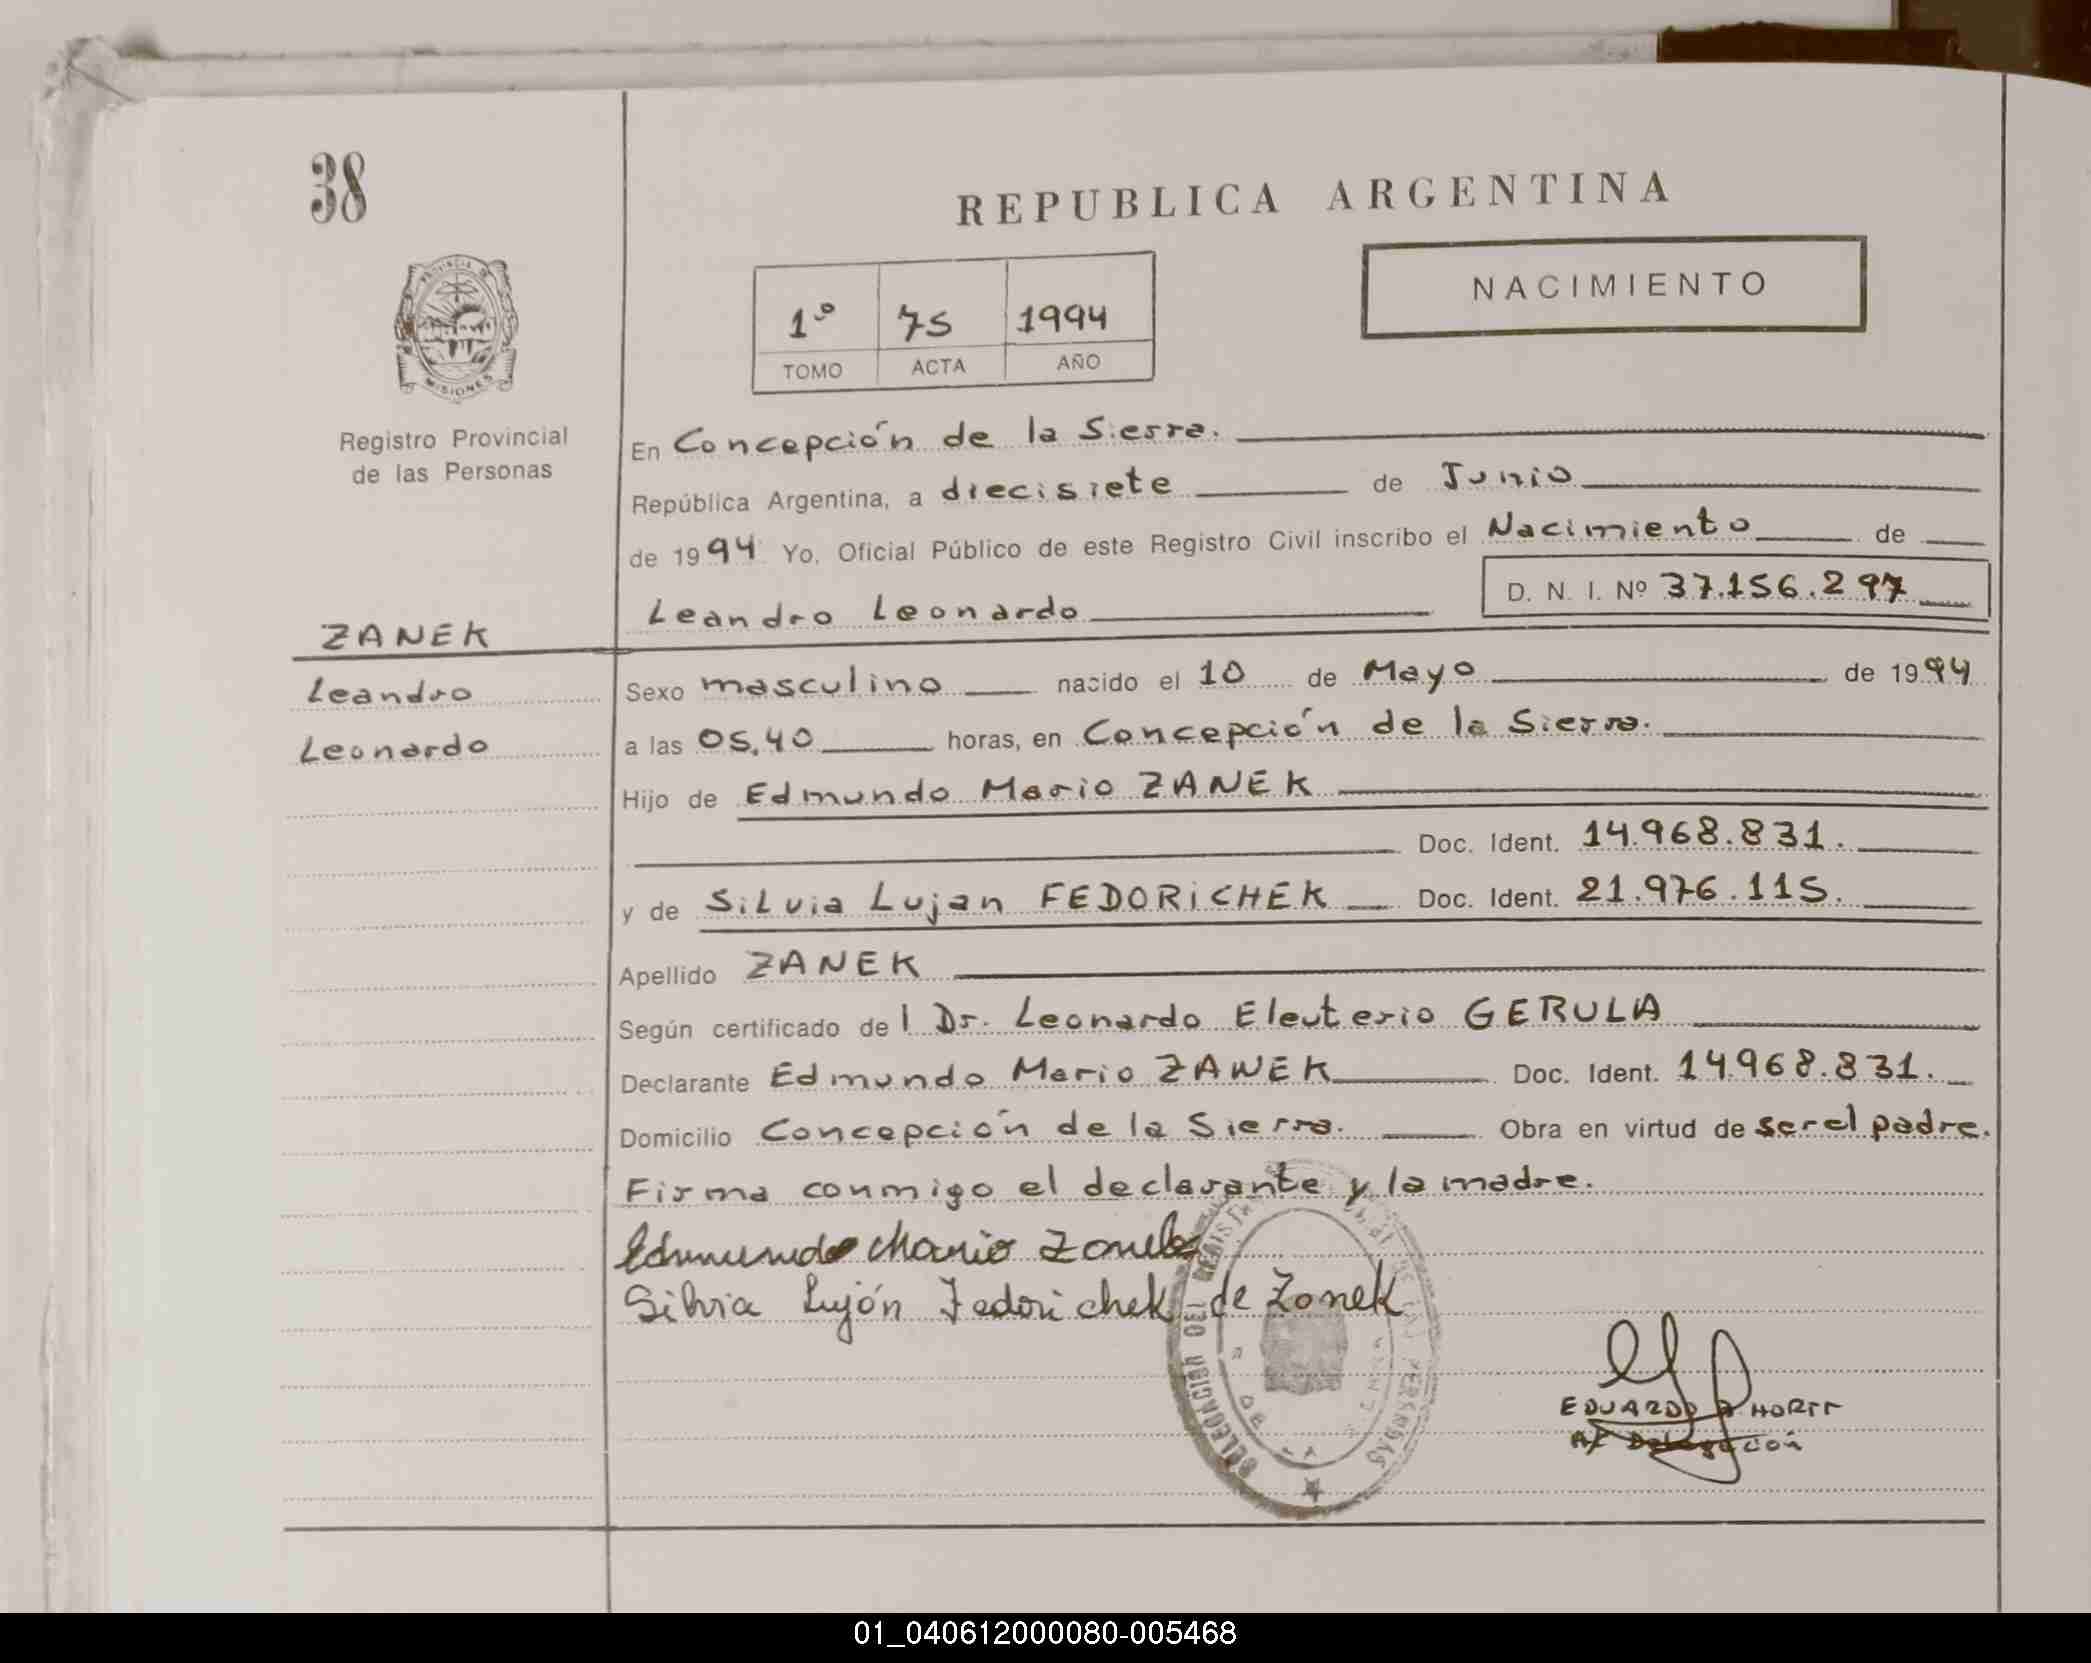 38
REPUBLICA ARGENTINA
NACIMIENTO
1º 75 1994
TOMO ACTA AÑO
PROVINCIA DE
MISIONES
Registro Provincial
de las Personas
En Concepción de la Sierra.
República Argentina, a diecisiete de Junio
de 1994 Yo, Oficial Público de este Registro Civil inscribo el Nacimiento de
Leandro Leonardo D. N. I. Nº 37.156.297
ZANEK
Leandro
Leonardo
Sexo masculino nacido el 10 de Mayo de 1994
a las 05,40 horas, en Concepción de la Sierra.
Hijo de Edmundo Mario ZANEK
Doc. Ident. 14.968.831.
y de SiLvia Lujan FEDORiCHEK Doc. Ident. 21.976.115.
Apellido ZANEK
Según certificado de l Dr. Leonardo Eleuterio GERULA
Declarante Edmundo Mario ZANEK Doc. Ident. 14.968.831.
Domicilio Concepción de la Sierra. Obra en virtud de ser el padre.
Firma conmigo el declarante y la madre.
Edmundo Mario Zanek
Silvia Luján Fedorichek de Zanek
DELEGACION DEL REGISTRO DE LAS PERSONAS
EDUARDO
A/C Delegación
01_040612000080-005468